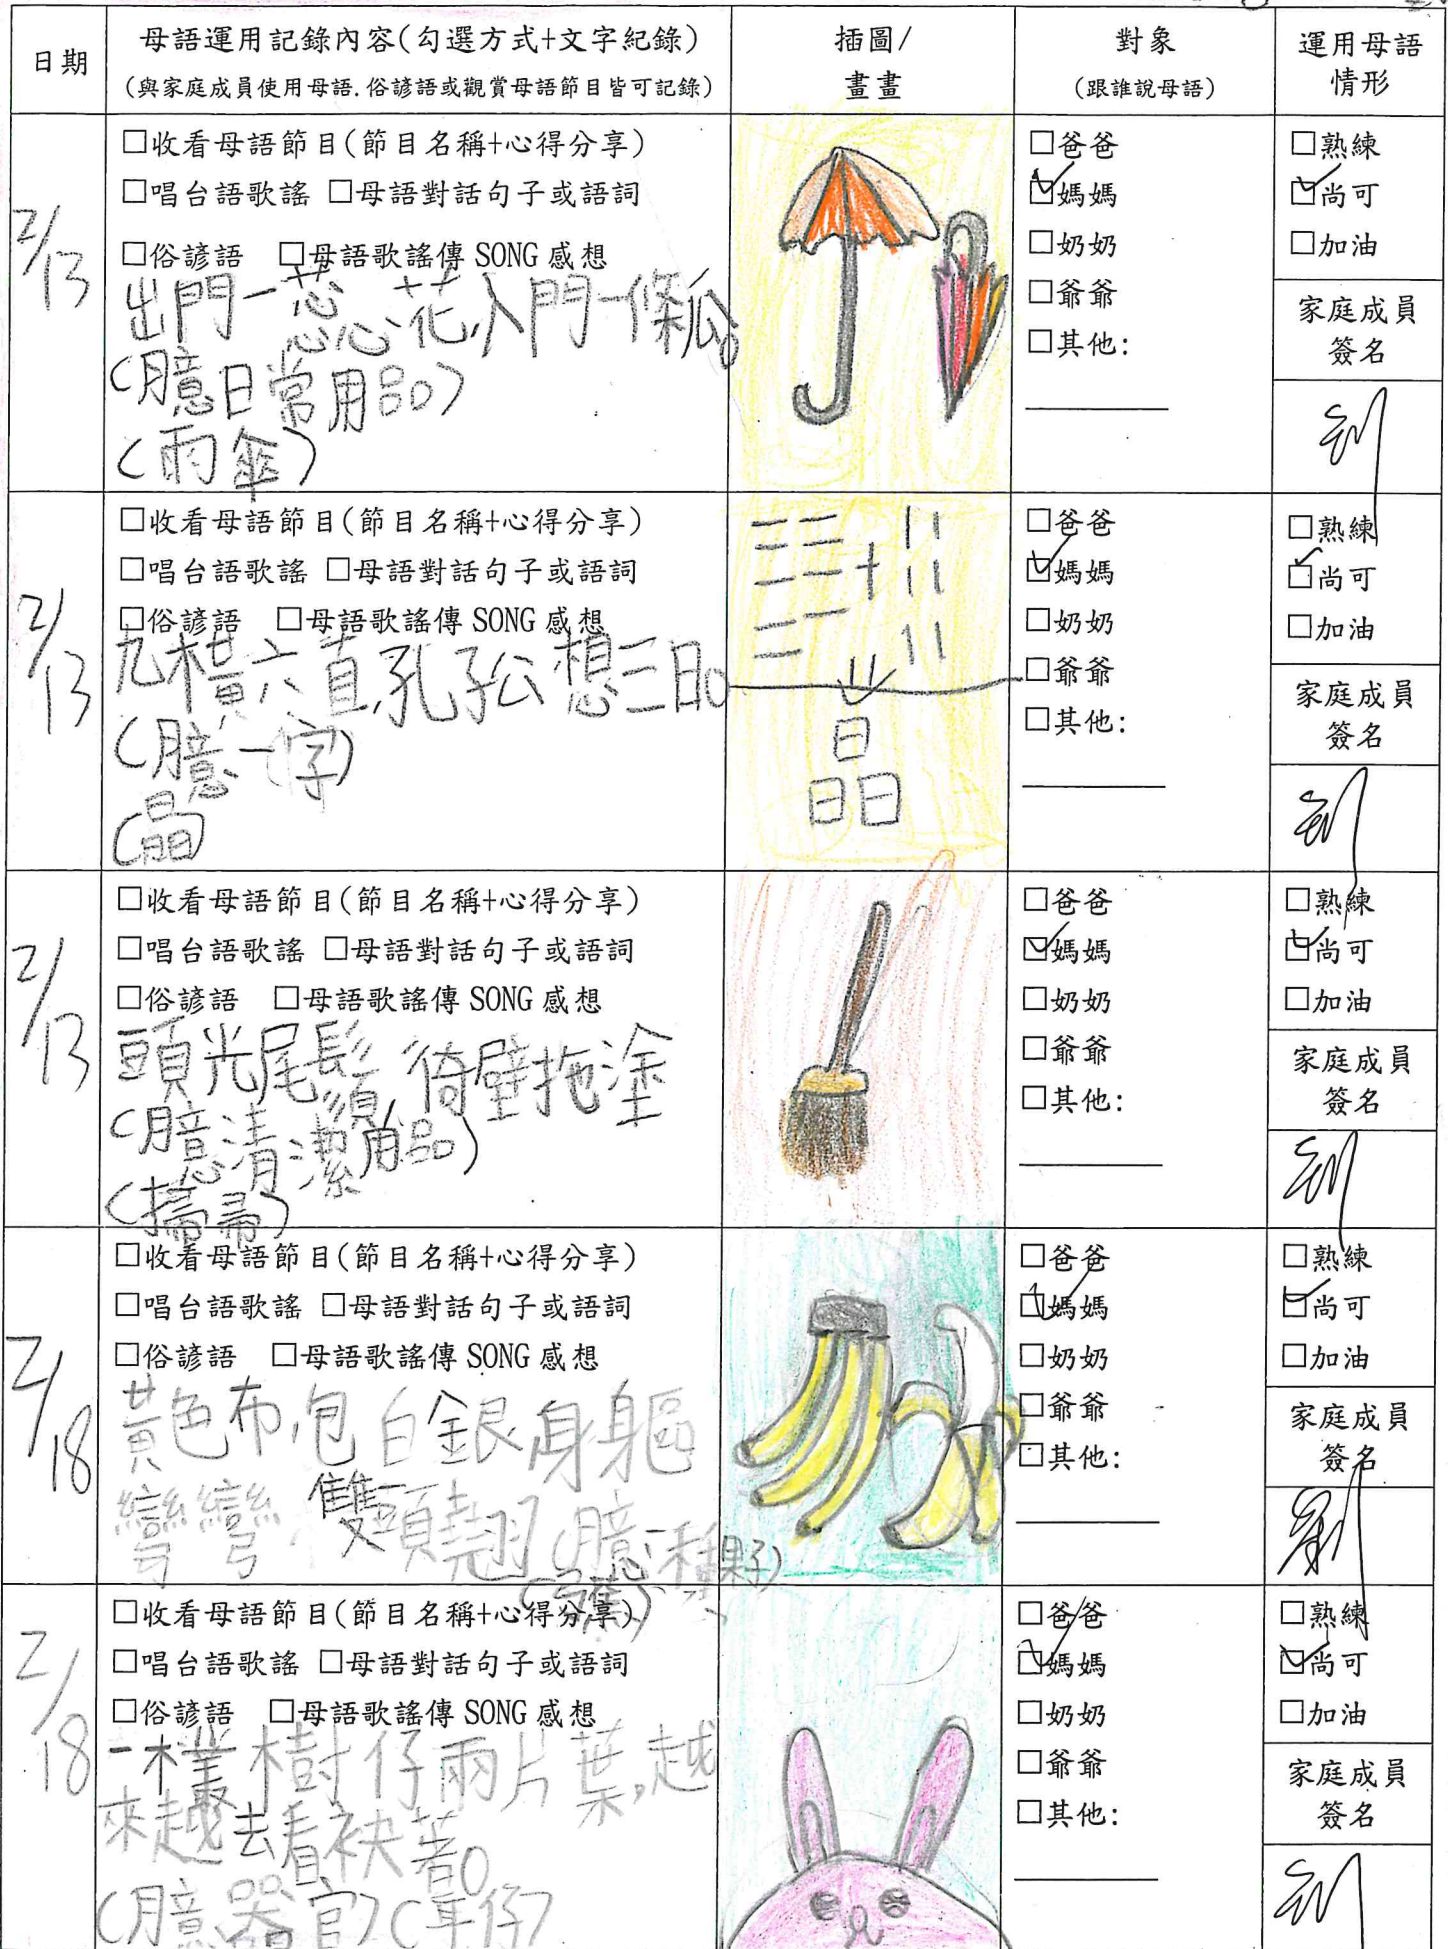 日期
母語運用記錄內容(勾選方式+文字紀錄)
(與家庭成員使用母語.俗諺語或觀賞母語節目皆可記錄)
插圖/
畫畫
對象
(跟誰說母語)
運用母語
情形
2/13
□收看母語節目(節目名稱+心得分享)
□唱台語歌謠 □母語對話句子或語詞
□俗諺語 □母語歌謠傳 SONG 感想
出門一蕊花,入門一條瓜。
(臆日常用品)
(雨傘)
□爸爸
☑媽媽
□奶奶
□爺爺
□其他:
□熟練
☑尚可
□加油
家庭成員
簽名
2/13
□收看母語節目(節目名稱+心得分享)
□唱台語歌謠 □母語對話句子或語詞
□俗諺語 □母語歌謠傳 SONG 感想
九橫六直,孔子公想三日。
(臆一字)
(晶)
日
日日
□爸爸
☑媽媽
□奶奶
□爺爺
□其他:
□熟練
☑尚可
□加油
家庭成員
簽名
2/13
□收看母語節目(節目名稱+心得分享)
□唱台語歌謠 □母語對話句子或語詞
□俗諺語 □母語歌謠傳 SONG 感想
頭光尾鬚鬚,徛壁拖塗
(臆清潔用品)
(掃帚)
□爸爸
☑媽媽
□奶奶
□爺爺
□其他:
□熟練
☑尚可
□加油
家庭成員
簽名
2/18
□收看母語節目(節目名稱+心得分享)
□唱台語歌謠 □母語對話句子或語詞
□俗諺語 □母語歌謠傳 SONG 感想
黃色布,包白銀,身軀
彎彎 雙頭翹(臆一種果子)
□爸爸
☑媽媽
□奶奶
□爺爺
□其他:
□熟練
☑尚可
□加油
家庭成員
簽名
劉
2/18
□收看母語節目(節目名稱+心得分享)
□唱台語歌謠 □母語對話句子或語詞
□俗諺語 □母語歌謠傳 SONG 感想
一欉樹仔兩片葉,越
來越去看袂著。
(臆器官)(耳仔)
□爸爸
☑媽媽
□奶奶
□爺爺
□其他:
□熟練
☑尚可
□加油
家庭成員
簽名